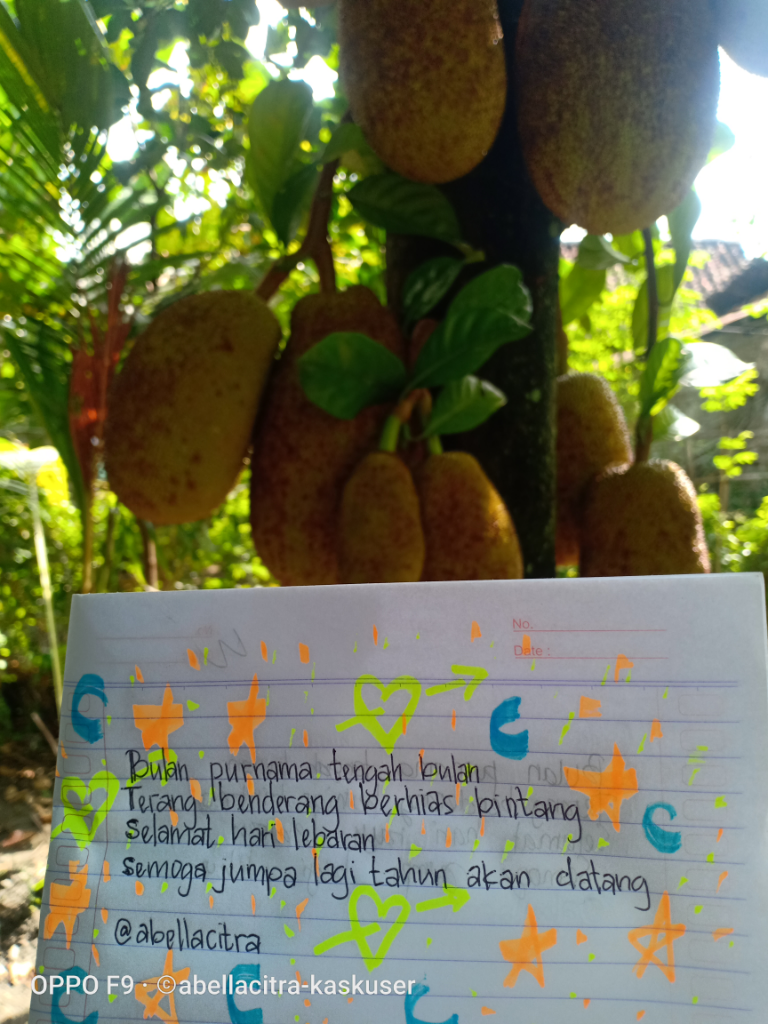 No.
Date :
Bulan purnama tengah bulan
Terang benderang berhias bintang
Selamat hari lebaran
semoga jumpa lagi tahun akan datang
@abellacitra
OPPO F9 · ©abellacitra-kaskuser